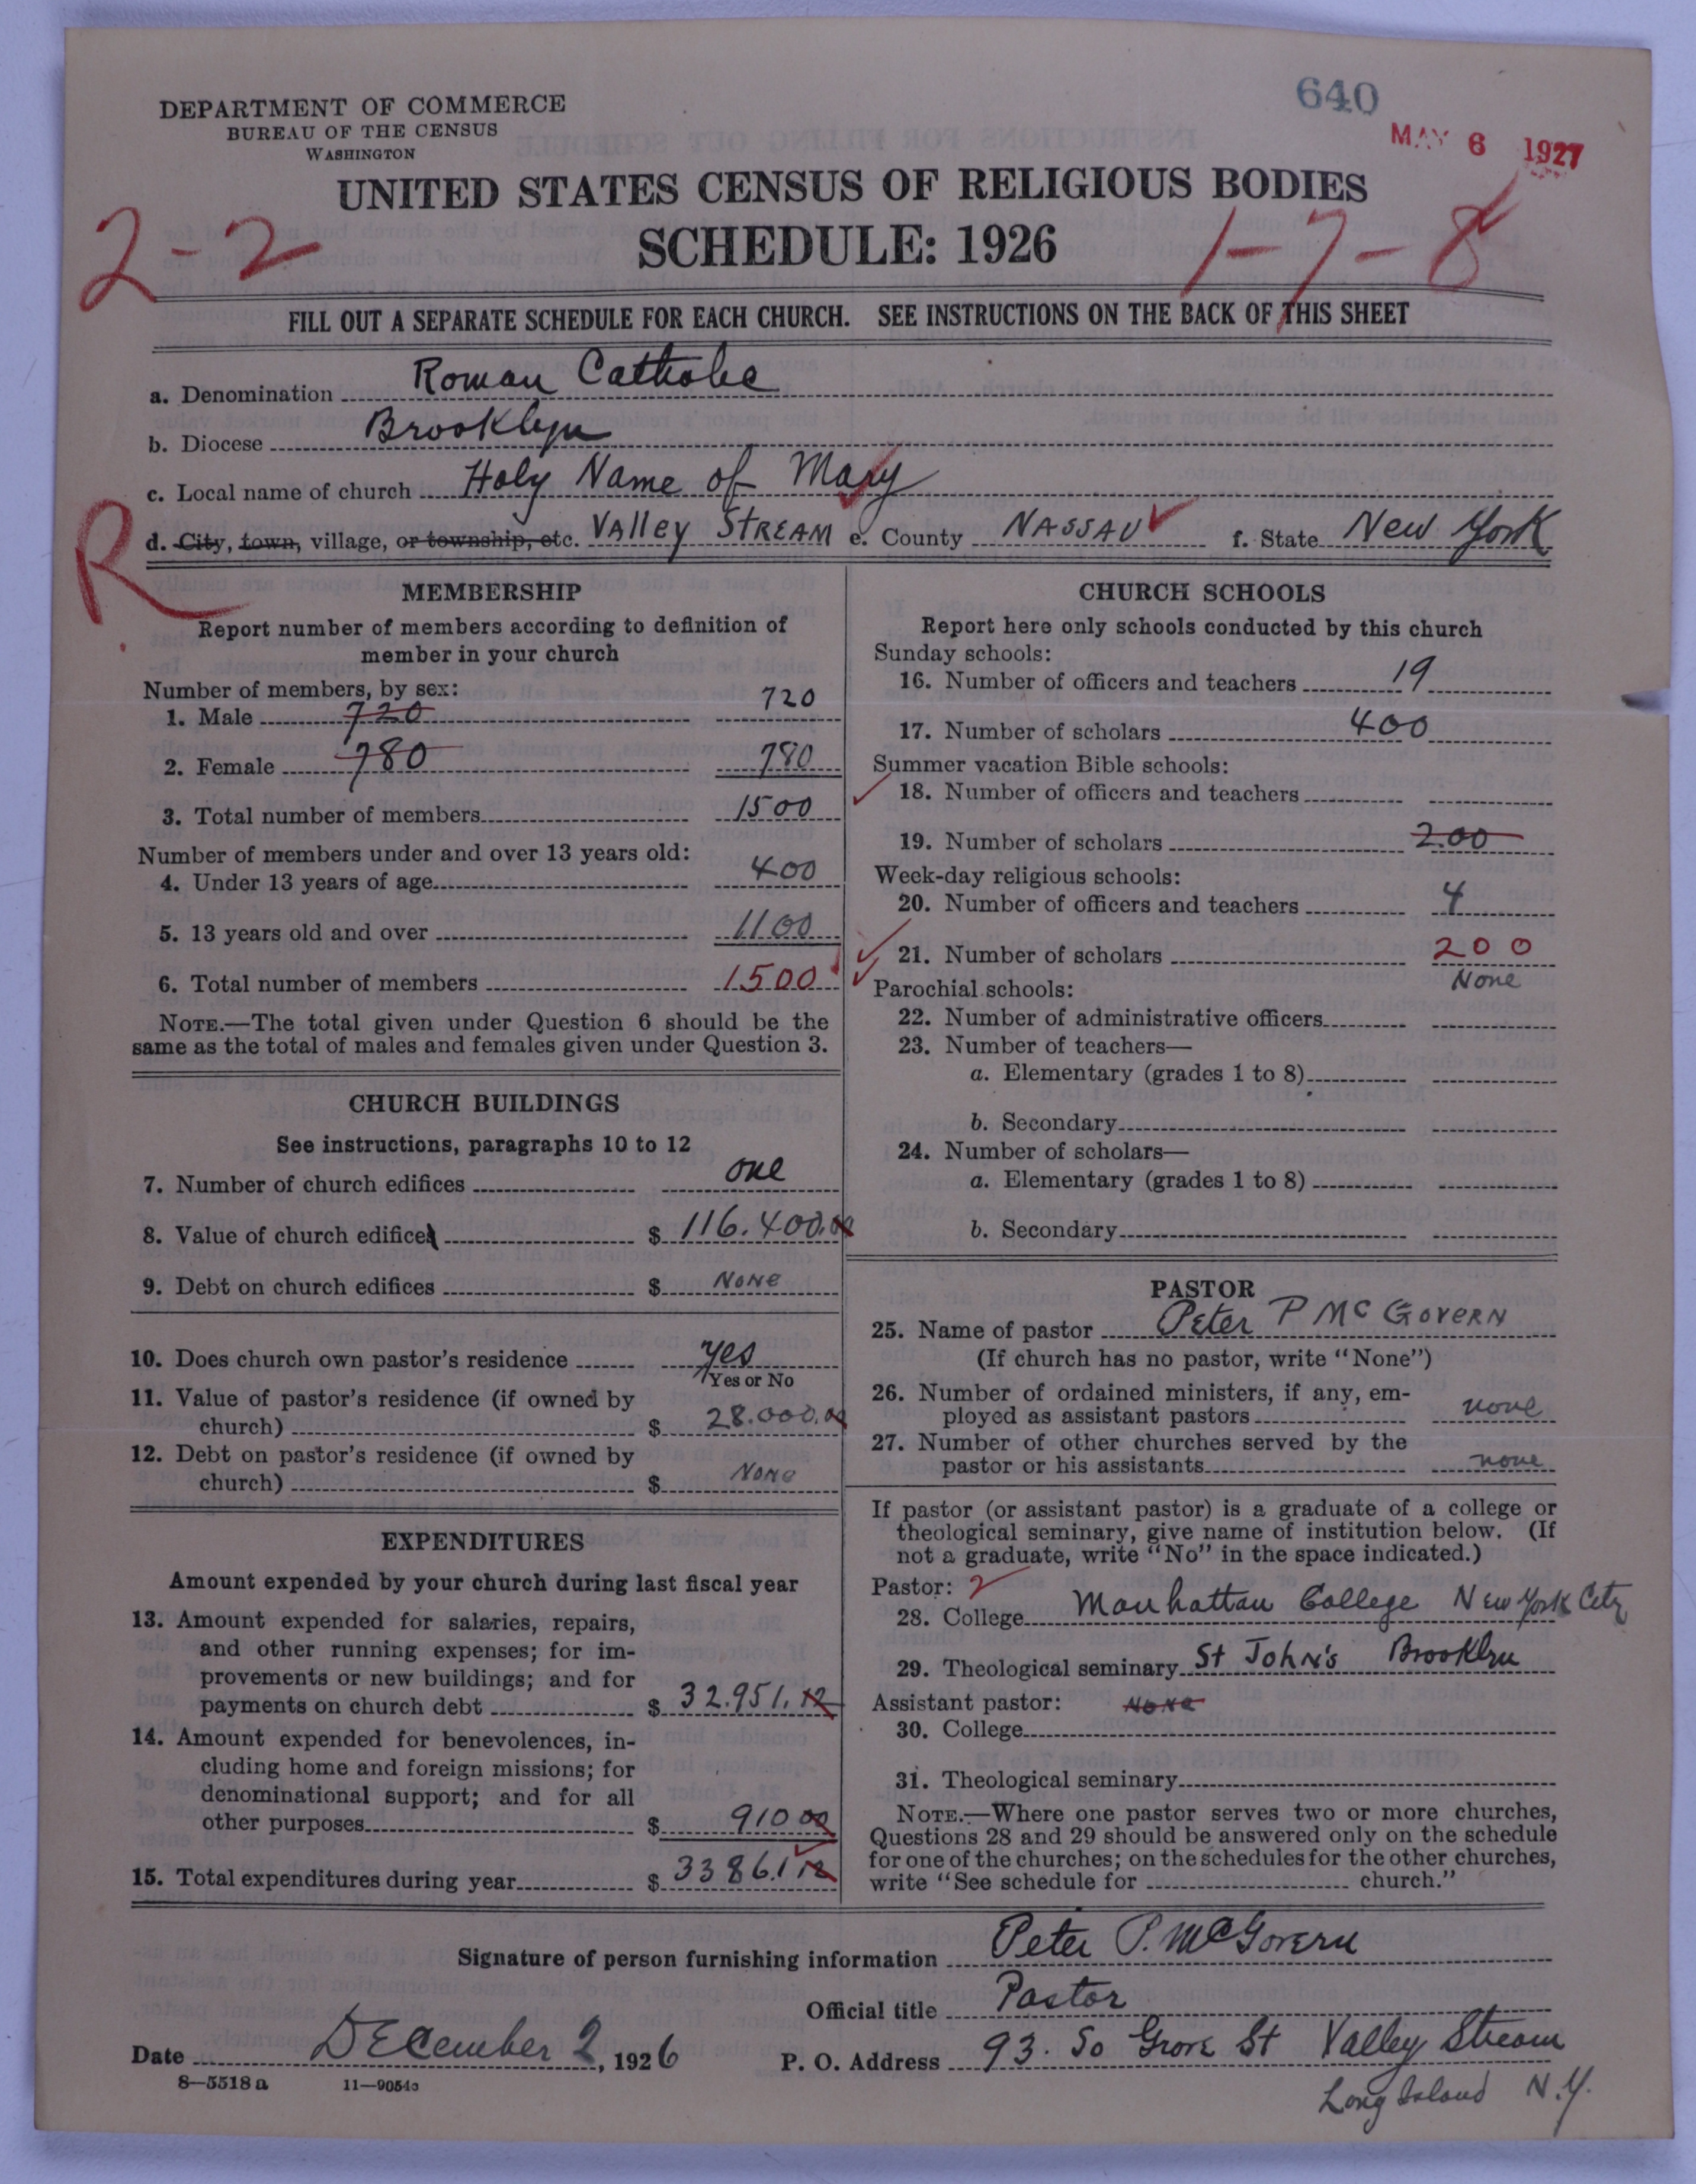 640
DEPARTMENT OF COMMERCE
BUREAU OF THE CENSUS
WASHINGTON
MAY 6 1927
UNITED STATES CENSUS OF RELIGIOUS BODIES
2-2
SCHEDULE: 1926
1-7-8
FILL OUT A SEPARATE SCHEDULE FOR EACH CHURCH. SEE INSTRUCTIONS ON THE BACK OF THIS SHEET
a. Denomination Roman Catholic
b. Diocese Brooklyn
c. Local name of church Holy Name of Mary
R
d. City, town, village, or township, etc. VAlley STREAM e. County NASSAU f. State New York
MEMBERSHIP
Report number of members according to definition of
member in your church
Number of members, by sex:
1. Male 720 720
2. Female 780 780
3. Total number of members 1500
Number of members under and over 13 years old:
4. Under 13 years of age 400
5. 13 years old and over 1100
6. Total number of members 1500
NOTE.—The total given under Question 6 should be the
same as the total of males and females given under Question 3.
CHURCH BUILDINGS
See instructions, paragraphs 10 to 12
7. Number of church edifices one
8. Value of church edifices $ 116.400.00
9. Debt on church edifices $ NONE
10. Does church own pastor's residence yes
Yes or No
11. Value of pastor's residence (if owned by
church) $ 28.000.00
12. Debt on pastor's residence (if owned by
church) $ NONe
EXPENDITURES
Amount expended by your church during last fiscal year
13. Amount expended for salaries, repairs,
and other running expenses; for im-
provements or new buildings; and for
payments on church debt $ 32.951.12
14. Amount expended for benevolences, in-
cluding home and foreign missions; for
denominational support; and for all
other purposes $ 910 00
15. Total expenditures during year $ 33861.12
CHURCH SCHOOLS
Report here only schools conducted by this church
Sunday schools:
16. Number of officers and teachers 19
17. Number of scholars 400
Summer vacation Bible schools:
18. Number of officers and teachers
19. Number of scholars 200
Week-day religious schools:
20. Number of officers and teachers 4
21. Number of scholars 200
Parochial schools: None
22. Number of administrative officers
23. Number of teachers—
a. Elementary (grades 1 to 8)
b. Secondary
24. Number of scholars—
a. Elementary (grades 1 to 8)
b. Secondary
PASTOR
25. Name of pastor Peter P McGovern
(If church has no pastor, write "None")
26. Number of ordained ministers, if any, em-
ployed as assistant pastors none
27. Number of other churches served by the
pastor or his assistants none
If pastor (or assistant pastor) is a graduate of a college or
theological seminary, give name of institution below. (If
not a graduate, write "No" in the space indicated.)
Pastor: 2
28. College Manhattan College New York City
29. Theological seminary St John's Brooklyn
Assistant pastor: None
30. College
31. Theological seminary
NOTE.—Where one pastor serves two or more churches,
Questions 28 and 29 should be answered only on the schedule
for one of the churches; on the schedules for the other churches,
write "See schedule for church."
Signature of person furnishing information Peter P. McGovern
Official title Pastor
Date December 2, 1926 P. O. Address 93. So Grove St Valley Stream
8—5518 a 11—9054a
Long Island N.Y.